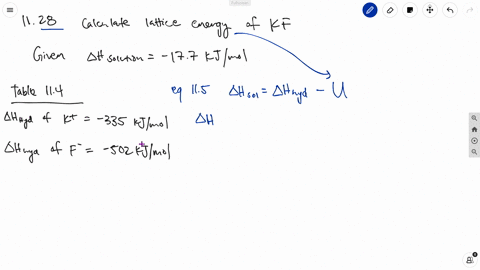 11.28 Calculate lattice energy of KF
Given ΔH solution = -17.7 KJ/mol
Table 11.4
eq 11.5 ΔHsol = ΔHhyd - U
ΔHhyd of K+ = -335 KJ/mol
ΔH
ΔHhyd of F- = -502 KJ/mol